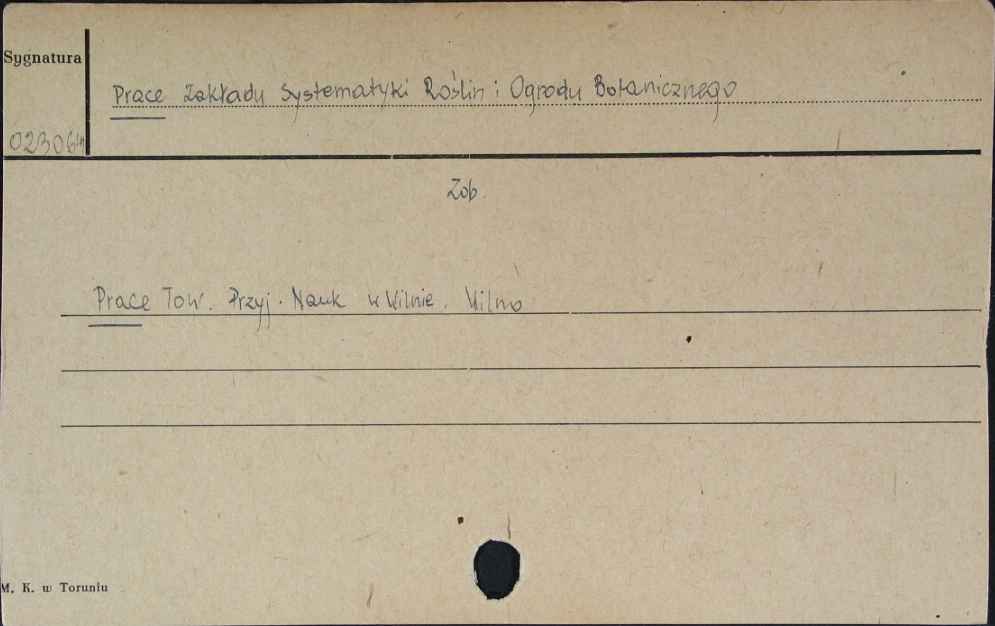 Sygnatura
Prace Zakładu Systematyki Roślin i Ogrodu Botanicznego
023064
Zob.
Prace Tow. Przyj. Nauk w Wilnie. Wilno
M. K. w Toruniu